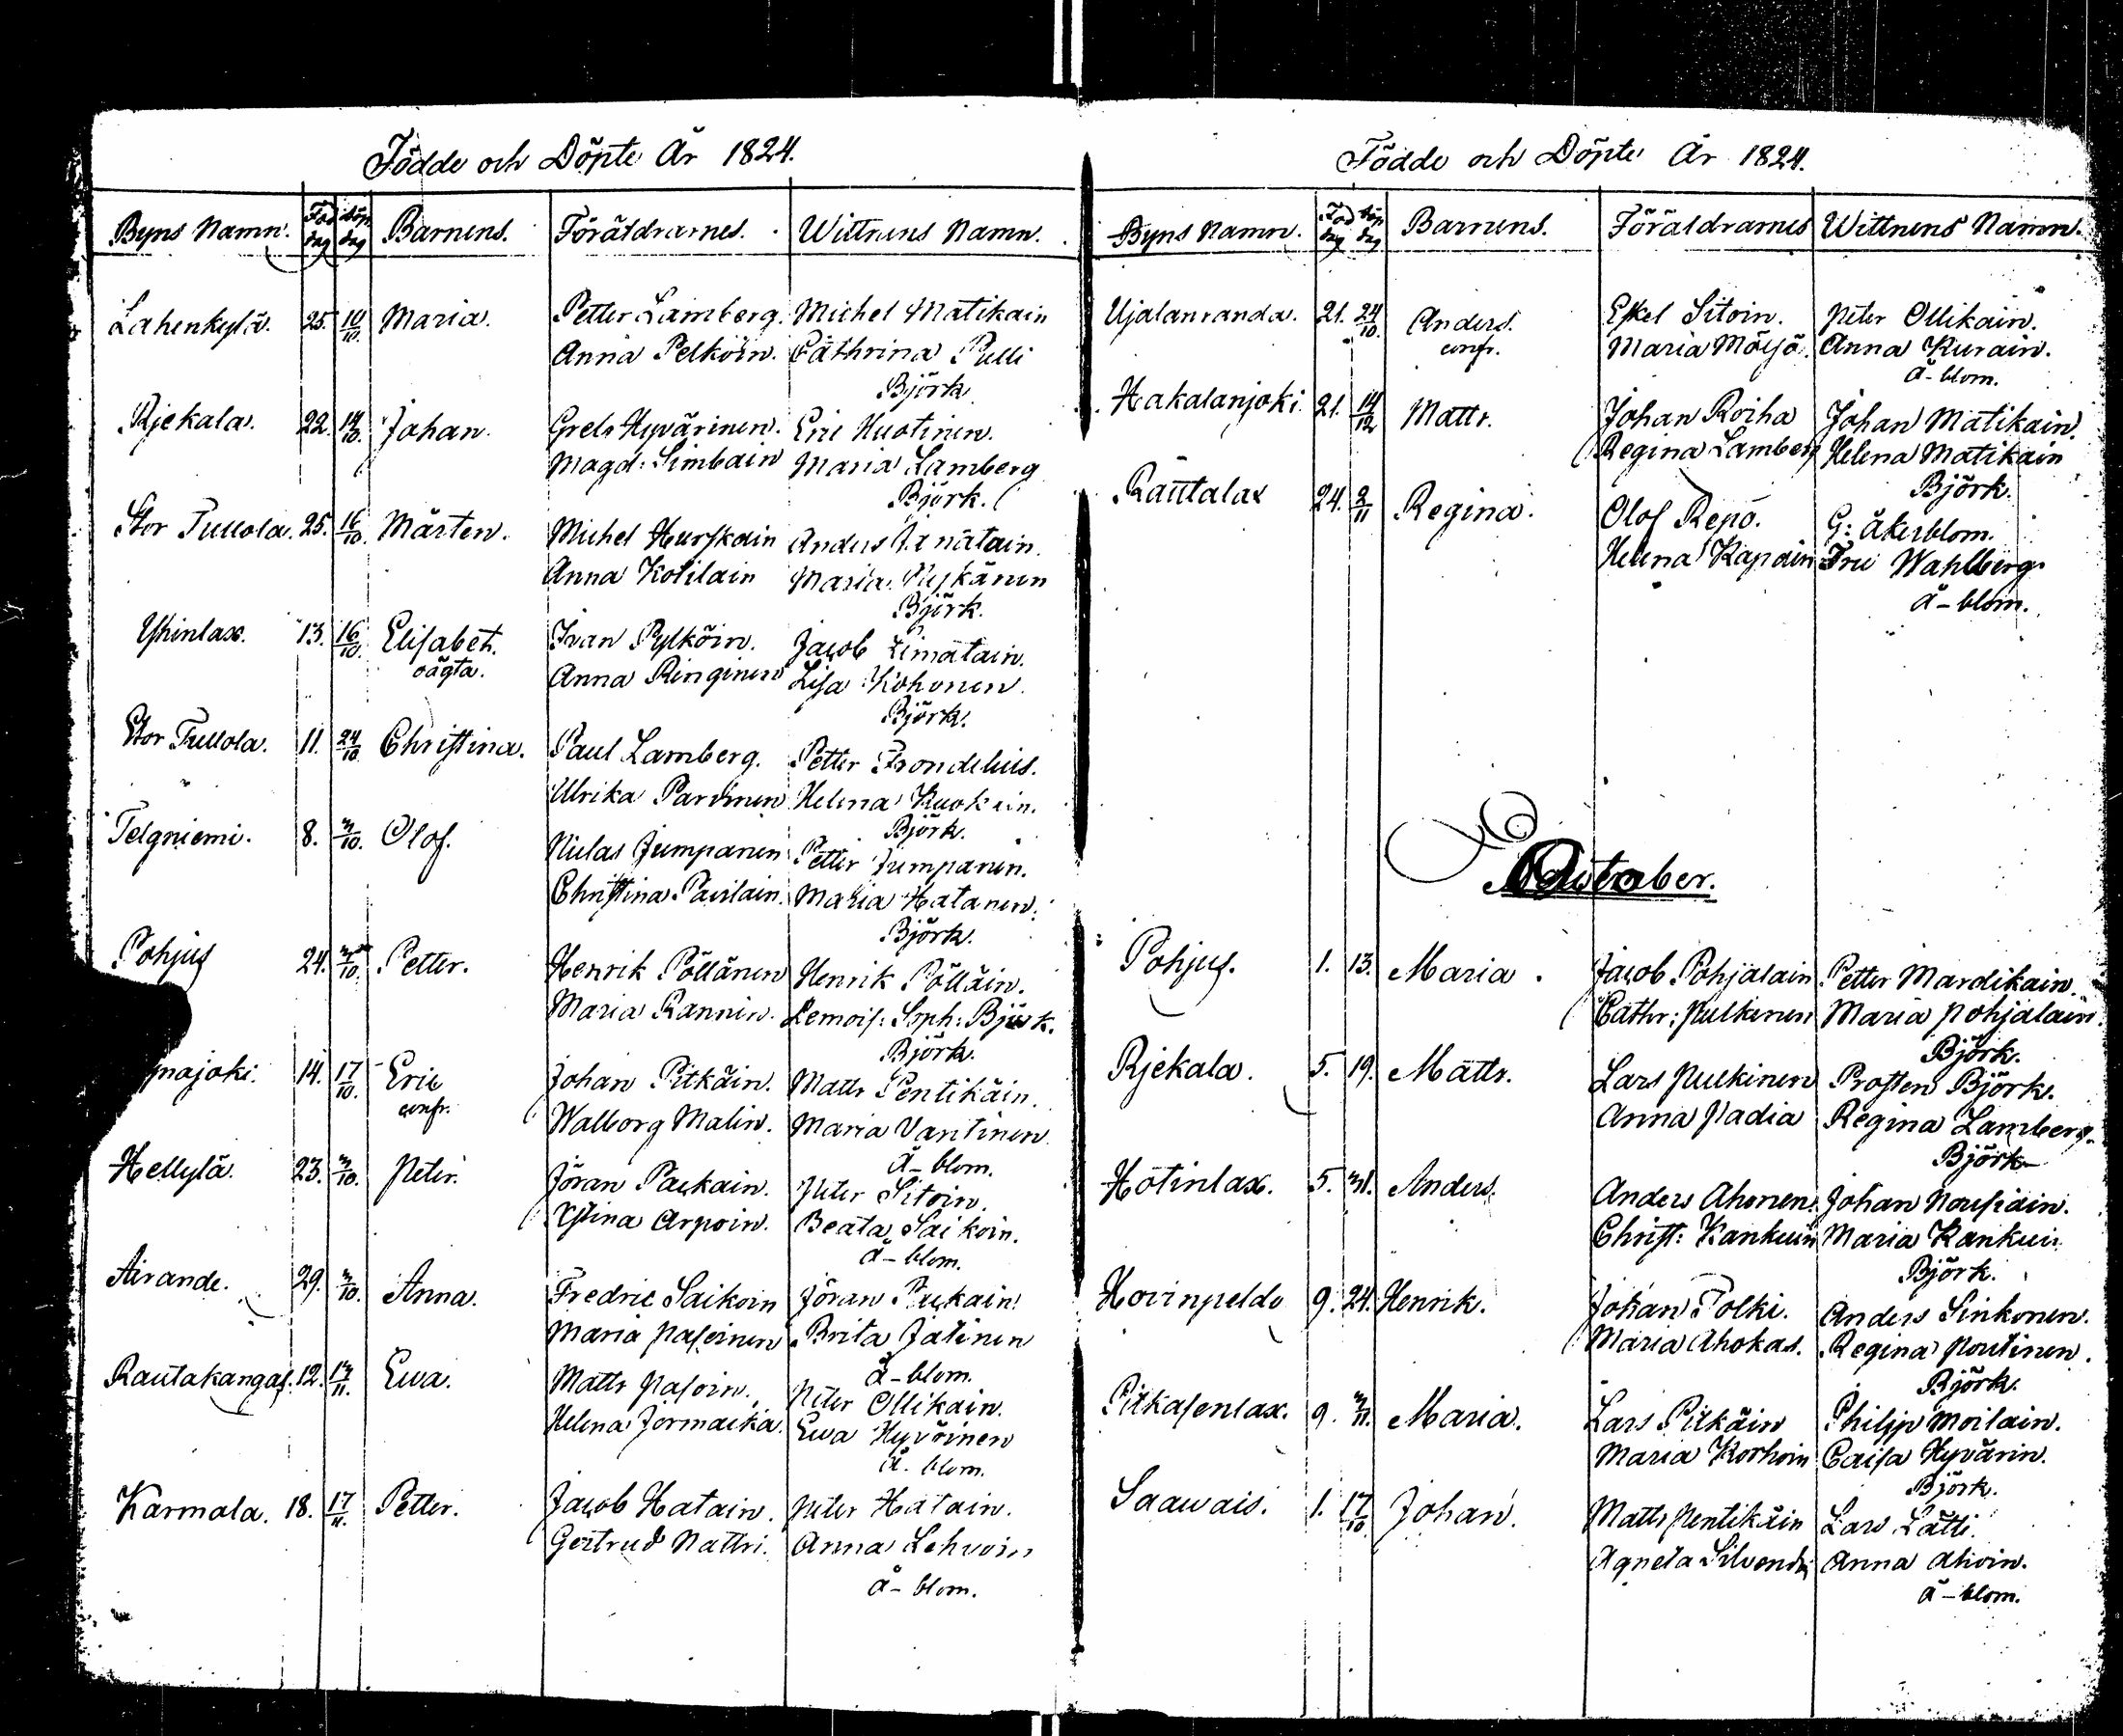 Födde och Döpte År 1824.
Byns Namn. Föd dag Döp dag Barnens. Föräldrarnes. Wittnens Namn.
Lahenkylä. 25. 10/10. Maria. Petter Lamberg. Michel Matikain
Anna Pelkoin. Cathrina Pulli
Björk
Rjekala. 22. 14/10. Johan. Grels Hyvärinen. Eric Huotinen.
Magd: Simbain Maria Lamberg
Björk.
Stor Tullola. 25. 16/10. Mårten. Michel Hurskain Anders
Anna Kotilain Maria
Björk.
Yhinlax. 13. 16/10. Elisabet. Ivan Pylköin. Jacob Limätain.
oägta. Anna Ringinen Lisa Kohonen.
Björk.
Stor Tullola. 11. 24/10. Christina. Paul Lamberg. Petter Frondelius.
Ulrika Parvinen Helena Kuokain.
Björk.
Telgniemi. 8. 3/10. Olof. Niclas Jumpanen Petter Jumpanen.
Christina Pavilain. Maria Hatanen.
Björk.
Pohjus 24. 3/10. Petter. Henrik Pöllänen Henrik Pölläin.
Maria Rannin. Demois: Soph: Björk.
Björk.
14. 17/10. Eric Johan Pitkäin. Matts Pentikäin.
confr. Walborg Malin. Maria Vantinen
Å-blom.
Hellylä. 23. 3/10. Peter. Jöran Paukain. Peter Sitoin.
Stina Arpoin. Beata Saikoin.
å-blom.
Airande. 29. 3/10. Anna. Fredric Saikoin Jöran Paukain
Maria Paseinen Brita Jatinen
å-blom.
Rautakangas. 12. 13/11. Ewa. Matts Pasoin. Peter Ollikain.
Helena Jormacka. Ewa Hyvöinen
Å-blom.
Karmala. 18. 17/11. Petter. Jacob Hatain. Peter Hatain.
Gertrud Nattri. Anna Lehvoin
å-blom.
Födde och Döpte År 1824.
Byns Namn. Föd dag Döp dag Barnens. Föräldrarnes Wittnens Namn.
Ujalanranda. 21. 24/10. Anders. Eskel Sitoin. Peter Ollikain.
confr. Maria Möyjö. Anna Kurain.
å-blom.
Hakalanjoki. 21. 14/12 Matts. Johan Roiha Johan Matikain.
Regina Lamberg Helena Matikain
Björk.
Räutalax 24. 2/11 Regina. Olof Repo. G: Åkerblom.
Helena Kapain Fru Wahlberg.
å-blom.
November.
Pohjus. 1. 13. Maria. Jacob Pohjalain Petter Mardikain.
Cathr: Pulkinen Maria Pohjalain.
Björk.
Rjekala. 5. 19. Matts. Lars Pulkinen Prosten Björk.
Anna Padia Regina Lamberg.
Björk
Hötinlax. 5. 31. Anders. Anders Ahonen. Johan Nousiain.
Christ: Kankuin Maria Kankuin
Björk.
Hovinpeldo 9. 24. Henrik. Johan Polki. Anders Sinkonen.
Maria Ahokas. Regina Poutinen.
Björk.
Pitkasenlax. 9. 3/11. Maria. Lars Pitkäin Philip Moilain.
Maria Korhoin Caisa Hyvärin.
Björk.
Saawais. 1. 17/10 Johan. Matts Pentikäin Lars Lätti.
Agneta Silvendin Anna Ahoin.
å-blom.